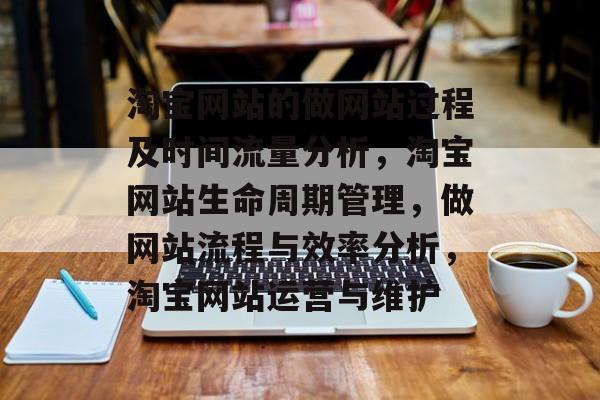 淘宝网站的做网站过程
及时间流量分析，淘宝
网站生命周期管理，做
网站流程与效率分析，
淘宝网站运营与维护